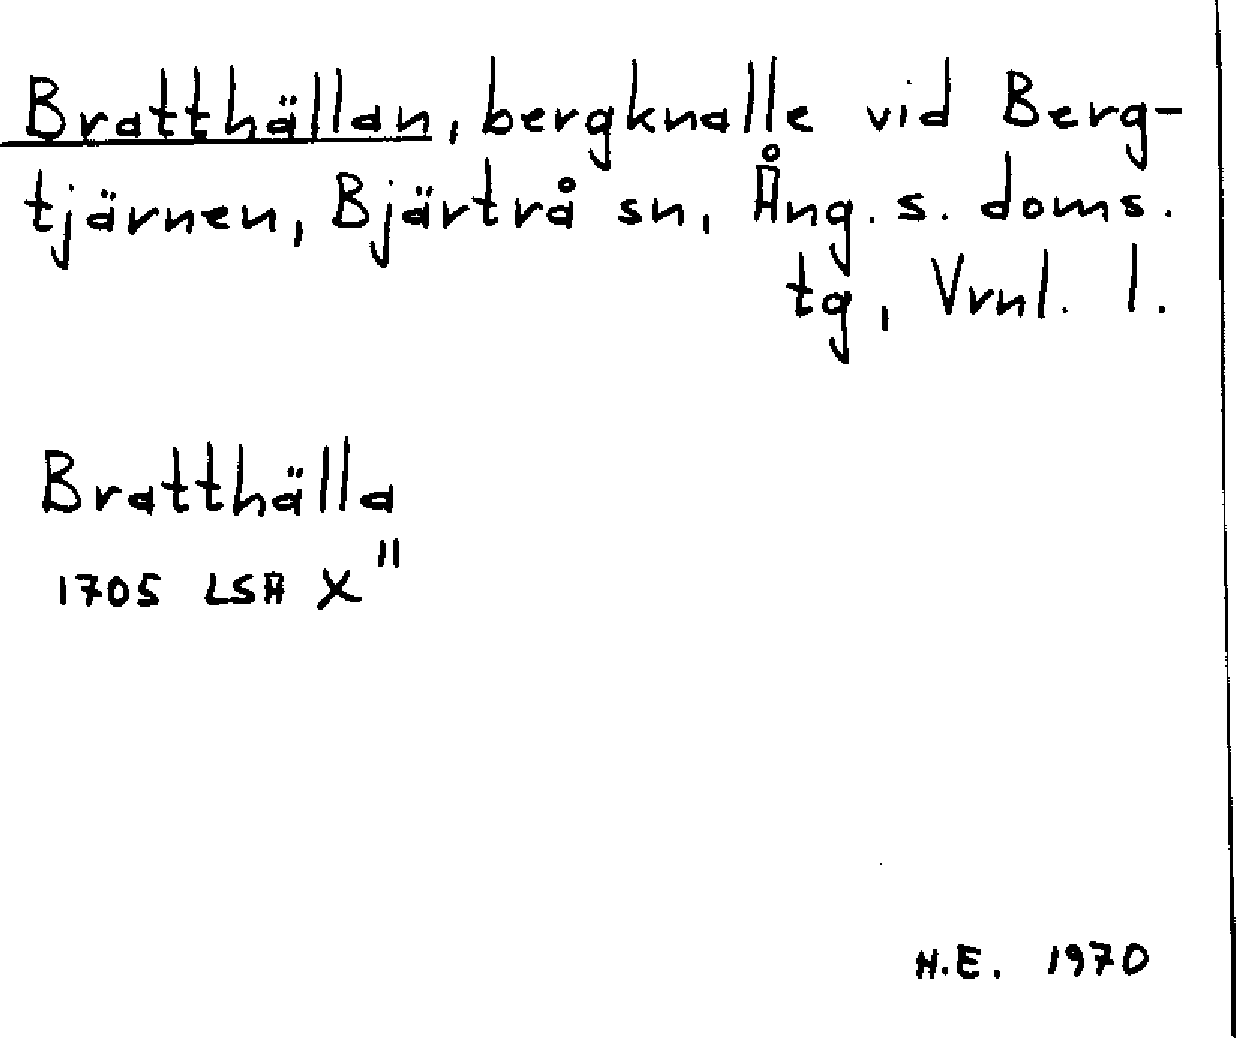 Bratthällan, bergknalle vid Berg-
tjärnen, Bjärtrå sn, Ång. s. doms.
tg, Vrnl. l.
Bratthälla
1705 LSA X"
H.E. 1970